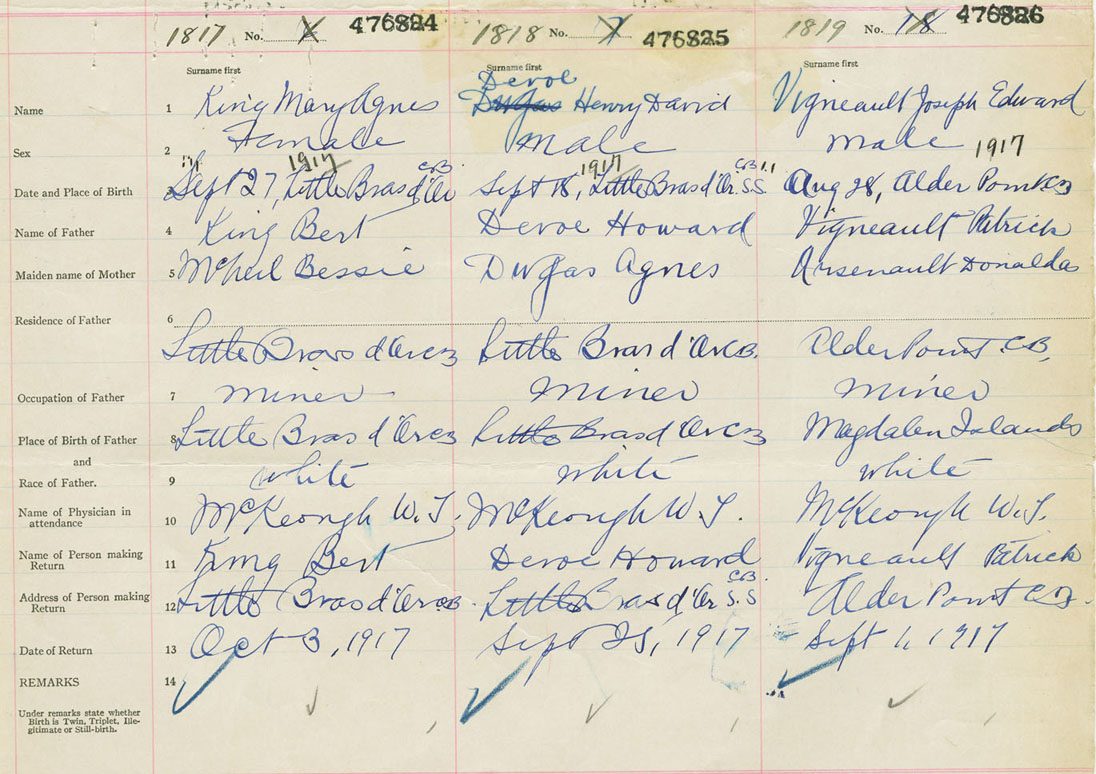 1817 No. 476824 1818 No. 7 476825 1819 No. 18 476826
Surname first Surname first Surname first
Devoe
Name 1 King Mary Agnes Dugas Henry David Vigneault Joseph Edward
Sex 2 Female Male Male
1917 C.B. 1917 C.B. 1917
Date and Place of Birth 3 Sept 27, Little Bras d'Or Sept 18, Little Bras d'Or. S.S Aug 28, Alder Point CB
Name of Father 4 King Bert Devoe Howard Vigneault Patrick
Maiden name of Mother 5 McNeil Bessie Dugas Agnes Arsenault Donalda
Residence of Father 6
Little Bras d'Or CB Little Bras d'Or CB. Alder Point CB,
Occupation of Father 7 Miner Miner Miner
Place of Birth of Father 8 Little Bras d'Or CB Little Bras d'Or CB Magdalen Islands
and
Race of Father. 9 white white white
Name of Physician in
attendance 10 McKeough W. J. McKeough W. J. McKeough W. J.
Name of Person making
Return 11 King Bert Devoe Howard Vigneault Patrick
C.B.
Address of Person making
Return 12 Little Bras d'Or CB Little Bras d'Or S.S Alder Point CB.
Date of Return 13 Oct 3, 1917 Sept 25, 1917 Sept 1, 1917
REMARKS 14
Under remarks state whether
Birth is Twin, Triplet, Ille-
gitimate or Still-birth.